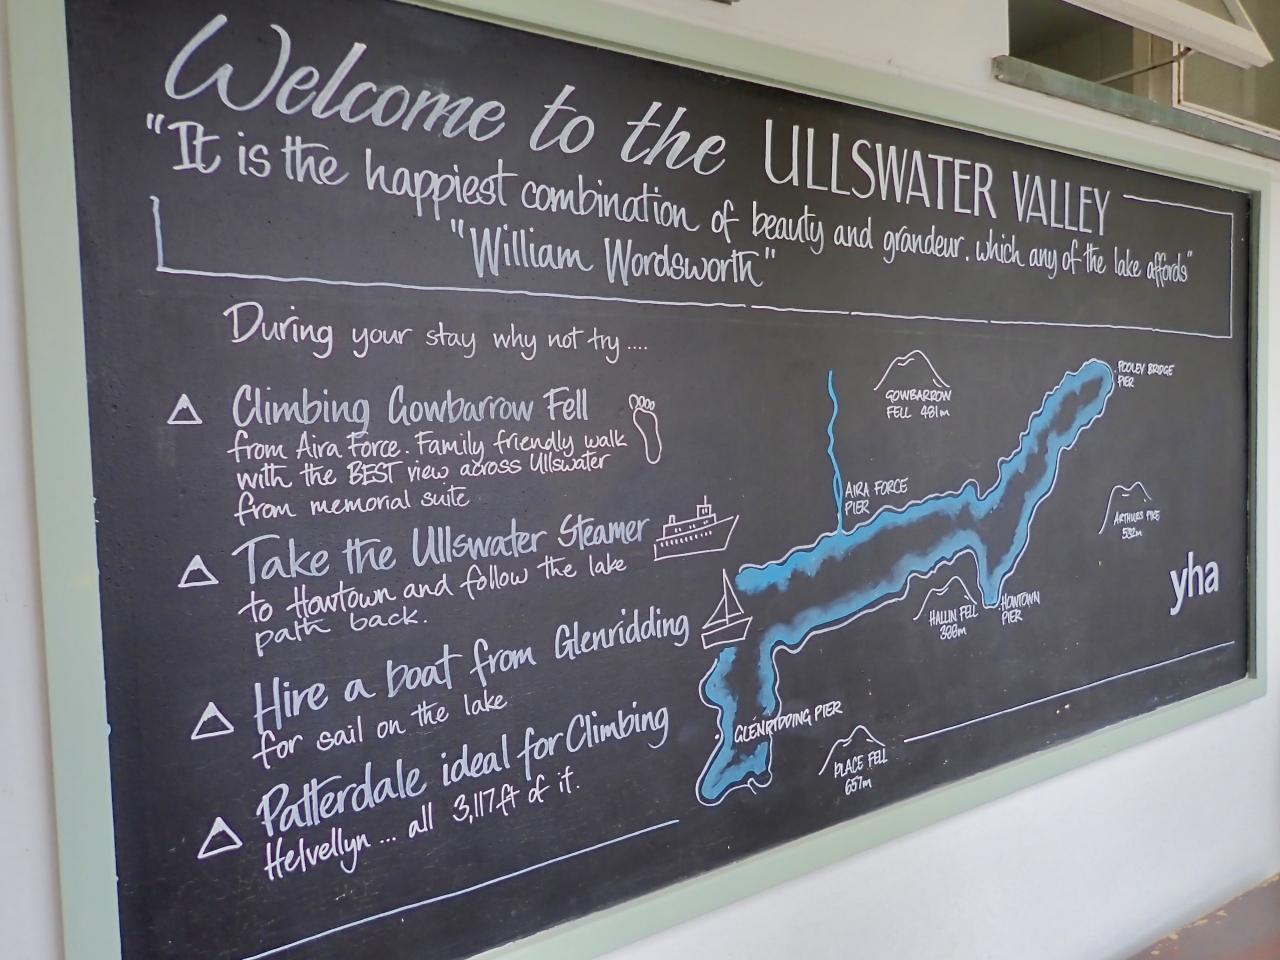 Welcome to the ULLSWATER VALLEY
"It is the happiest combination of beauty and grandeur. which any of the lake affords"
"William Wordsworth"
During your stay why not try ....
Climbing Gowbarrow Fell
from Aira Force. Family friendly walk
with the BEST view across Ullswater
from memorial suite
Take the Ullswater Steamer
to Howtown and follow the lake
path back.
Hire a boat from Glenridding
for sail on the lake
Patterdale ideal for Climbing
Helvellyn ... all 3,117ft of it.
GOWBARROW
FELL 481m
POOLEY BRIDGE
PIER
AIRA FORCE
PIER
ARTHURS PIKE
532m
HALLIN FELL
388m
HOWTOWN
PIER
GLENRIDDING PIER
PLACE FELL
657m
yha